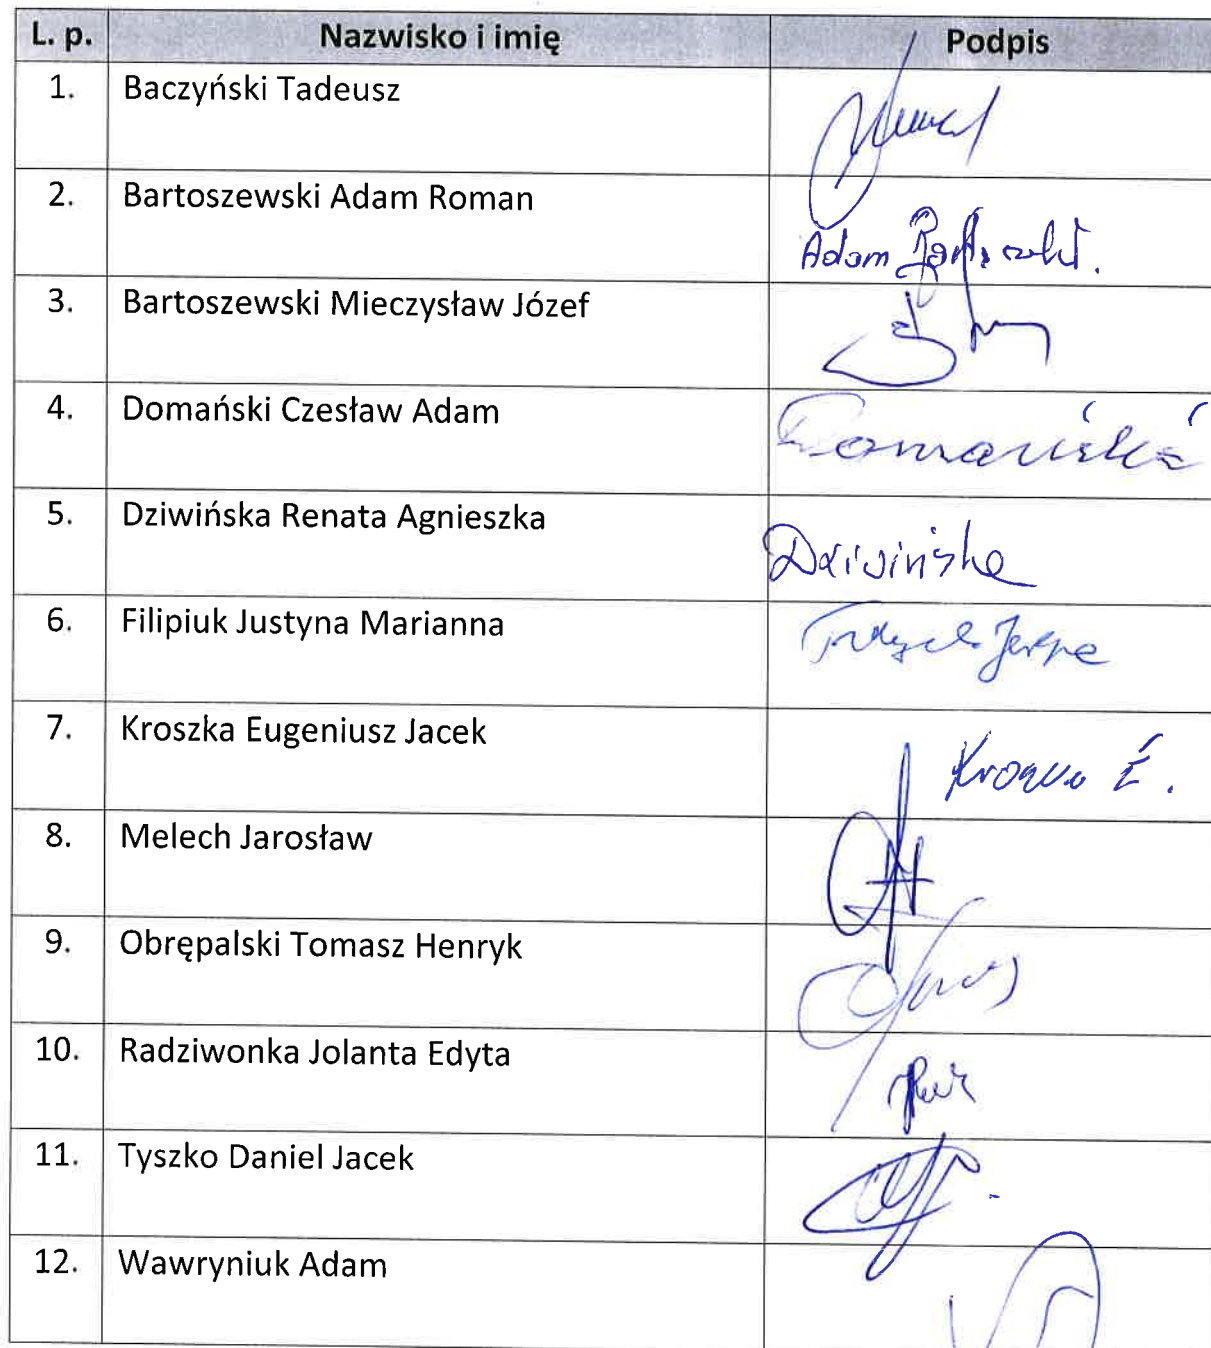 L. p. Nazwisko i imię Podpis
1. Baczyński Tadeusz
2. Bartoszewski Adam Roman Adam
3. Bartoszewski Mieczysław Józef
4. Domański Czesław Adam Domański
5. Dziwińska Renata Agnieszka Dziwińska
6. Filipiuk Justyna Marianna
7. Kroszka Eugeniusz Jacek
8. Melech Jarosław
9. Obrępalski Tomasz Henryk
10. Radziwonka Jolanta Edyta
11. Tyszko Daniel Jacek
12. Wawryniuk Adam